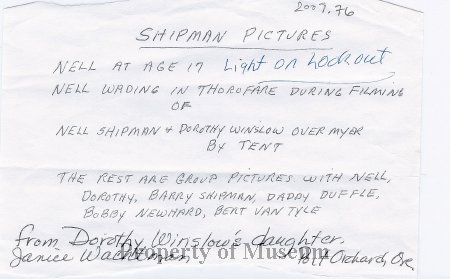 2007.76
SHIPMAN PICTURES
NELL AT AGE 17 Light on Lookout
NELL WADING IN THOROFARE DURING FILMING
OF
NELL SHIPMAN & DOROTHY WINSLOW OVER MYER
BY TENT
THE REST ARE GROUP PICTURES WITH NELL,
DOROTHY, BARRY SHIPMAN, DADDY DUFFLE,
BOBBY NEWHARD, BERT VAN TYLE
from Dorothy Winslow's daughter.
Janice
Property of Museum
Orchard, Ore.